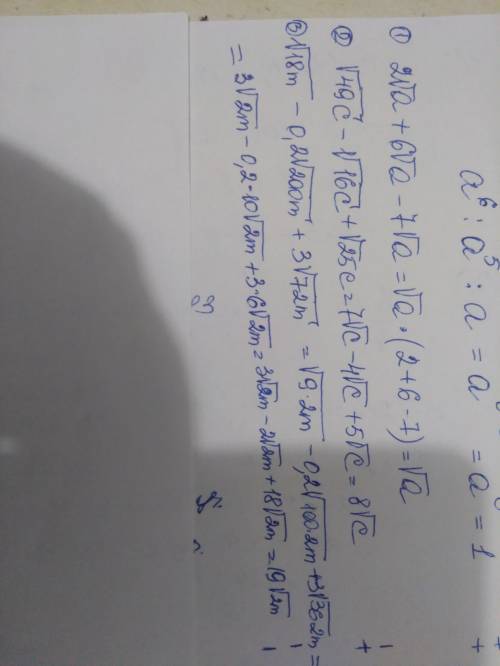 a⁶ : a⁵ : a = a = a = 1
① 2√a + 6√a - 7√a = √a · (2+6-7) = √a
② √49c - √16c + √25c = 7√c - 4√c + 5√c = 8√c
③ √18m - 0,2√200m + 3√72m = √9·2m - 0,2√100·2m + 3√36·2m =
= 3√2m - 0,2·10√2m + 3·6√2m = 3√2m - 2√2m + 18√2m = 19√2m